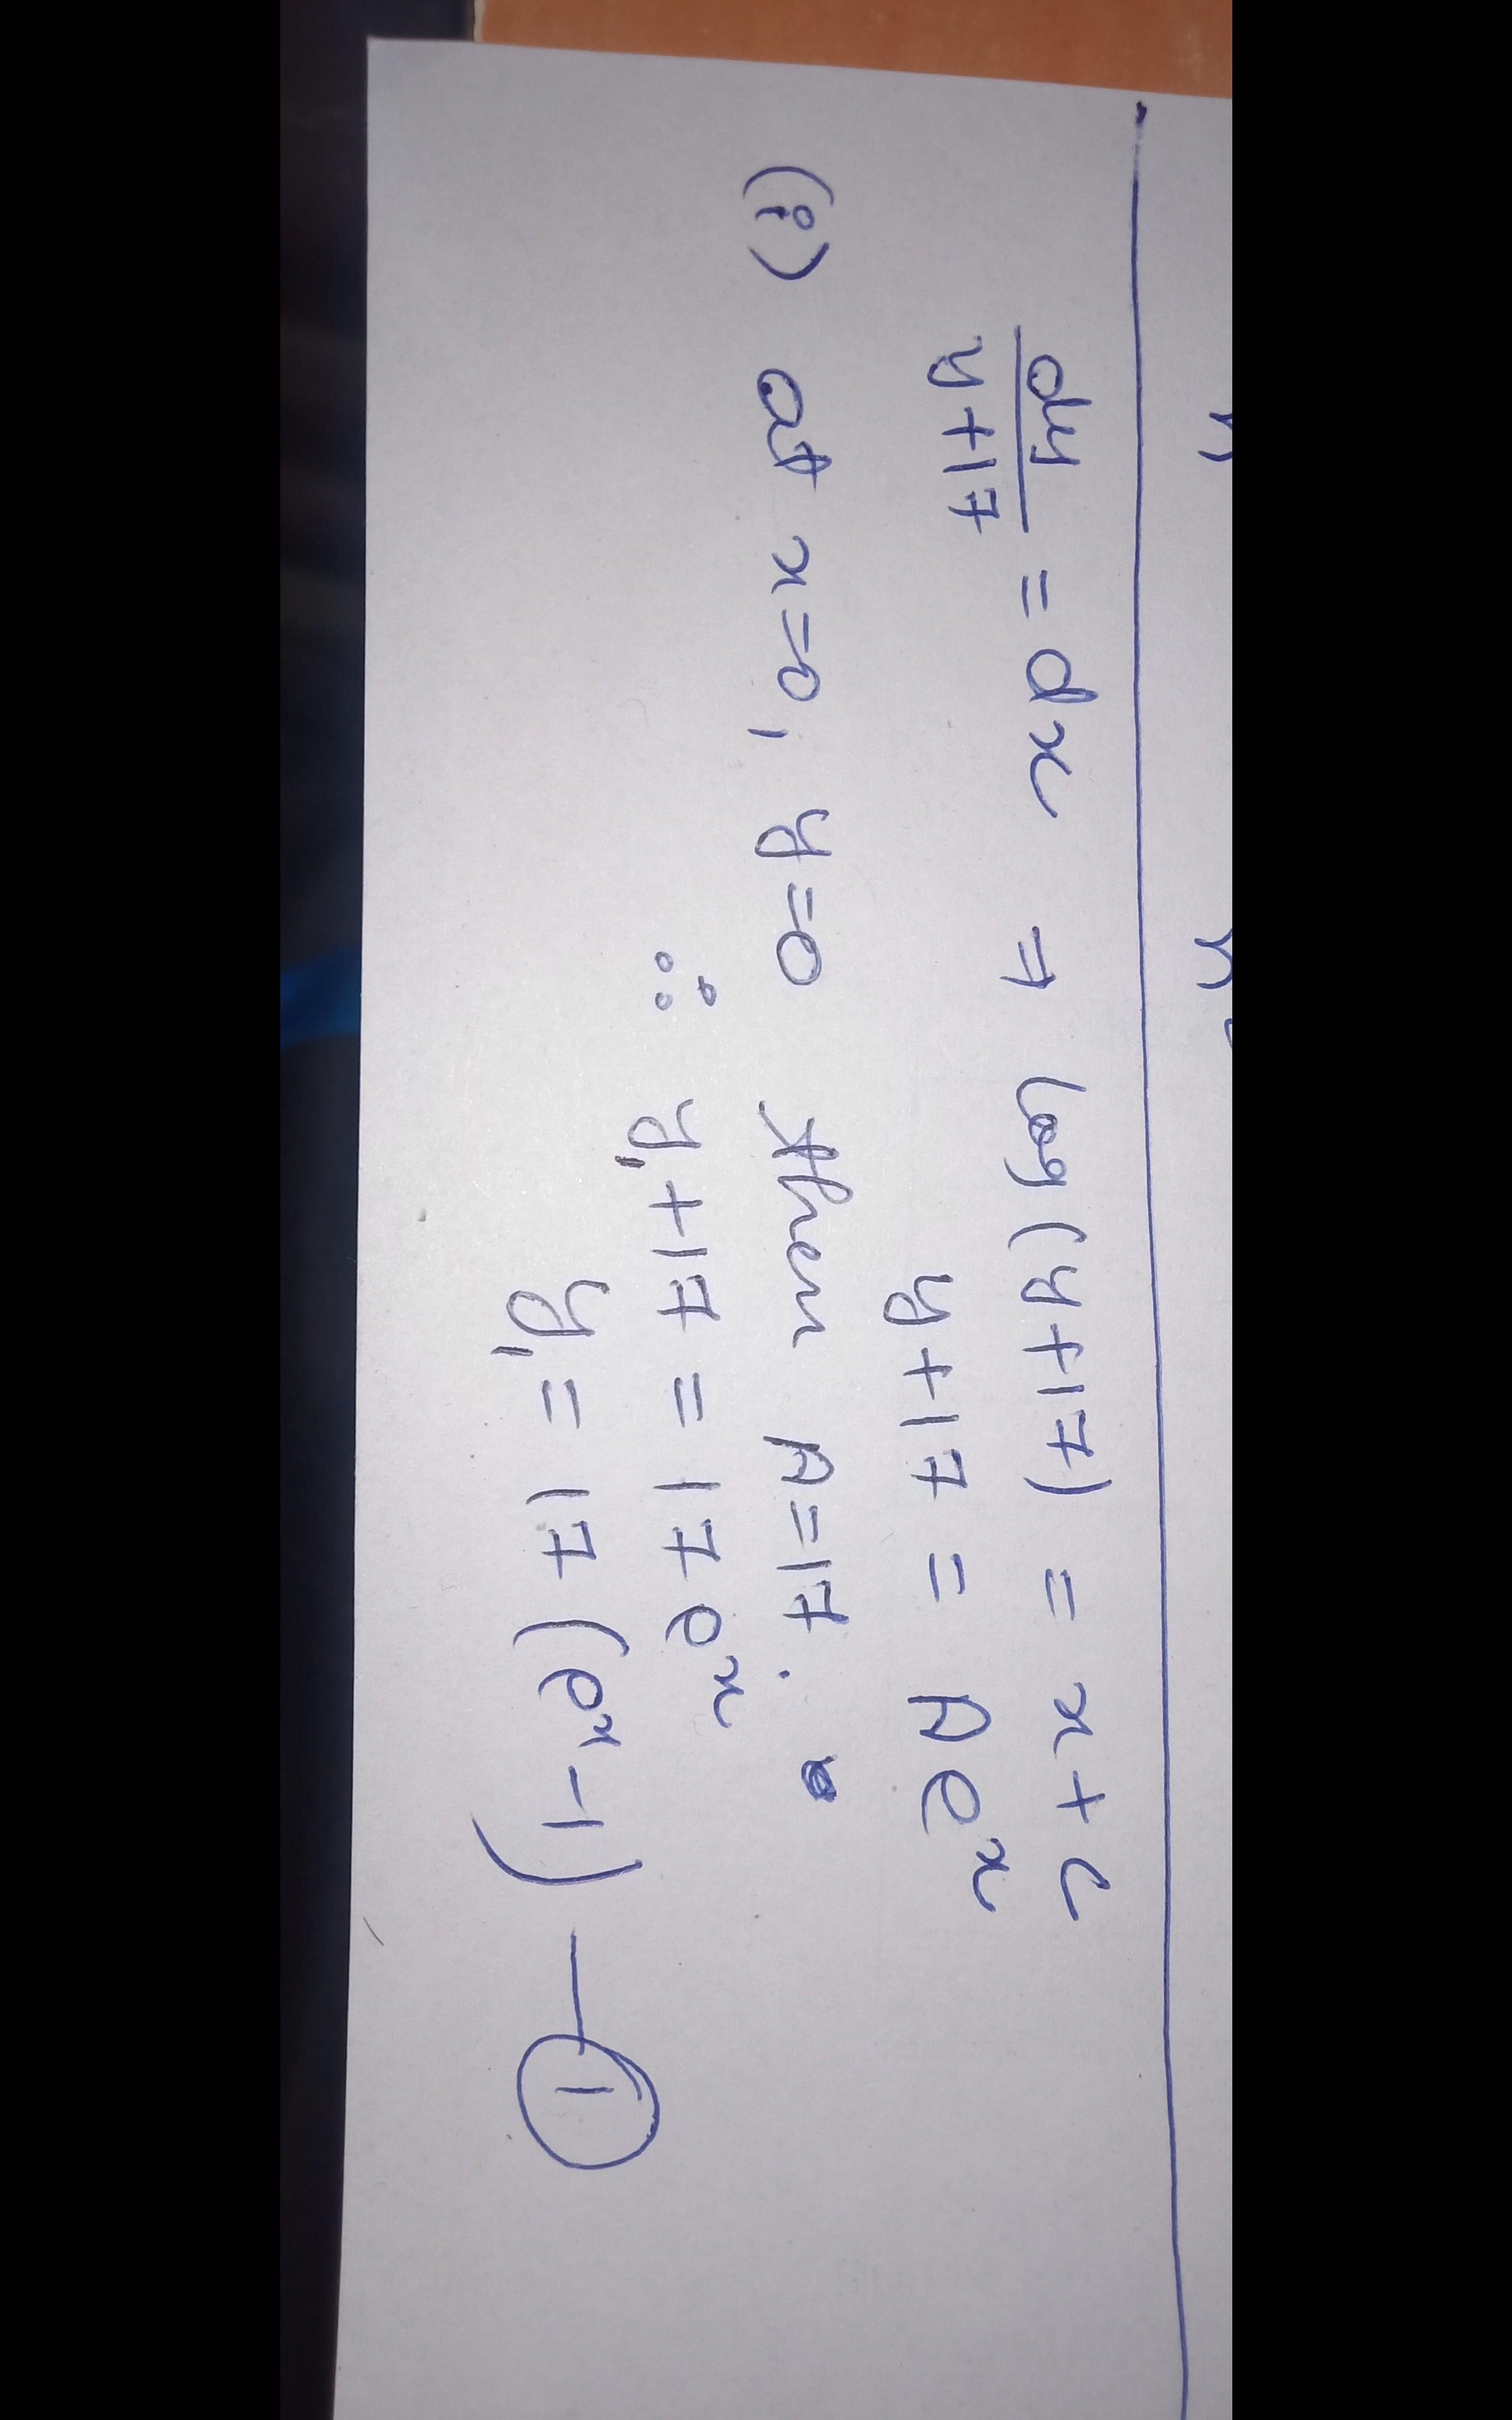 dy/y+17 = dx ⇒ log(y+17) = x+c
y+17 = A eˣ
(i) at x=0, y=0 then A=17.
∴ y₁+17 = 17 eˣ
y₁ = 17 (eˣ-1) — ①